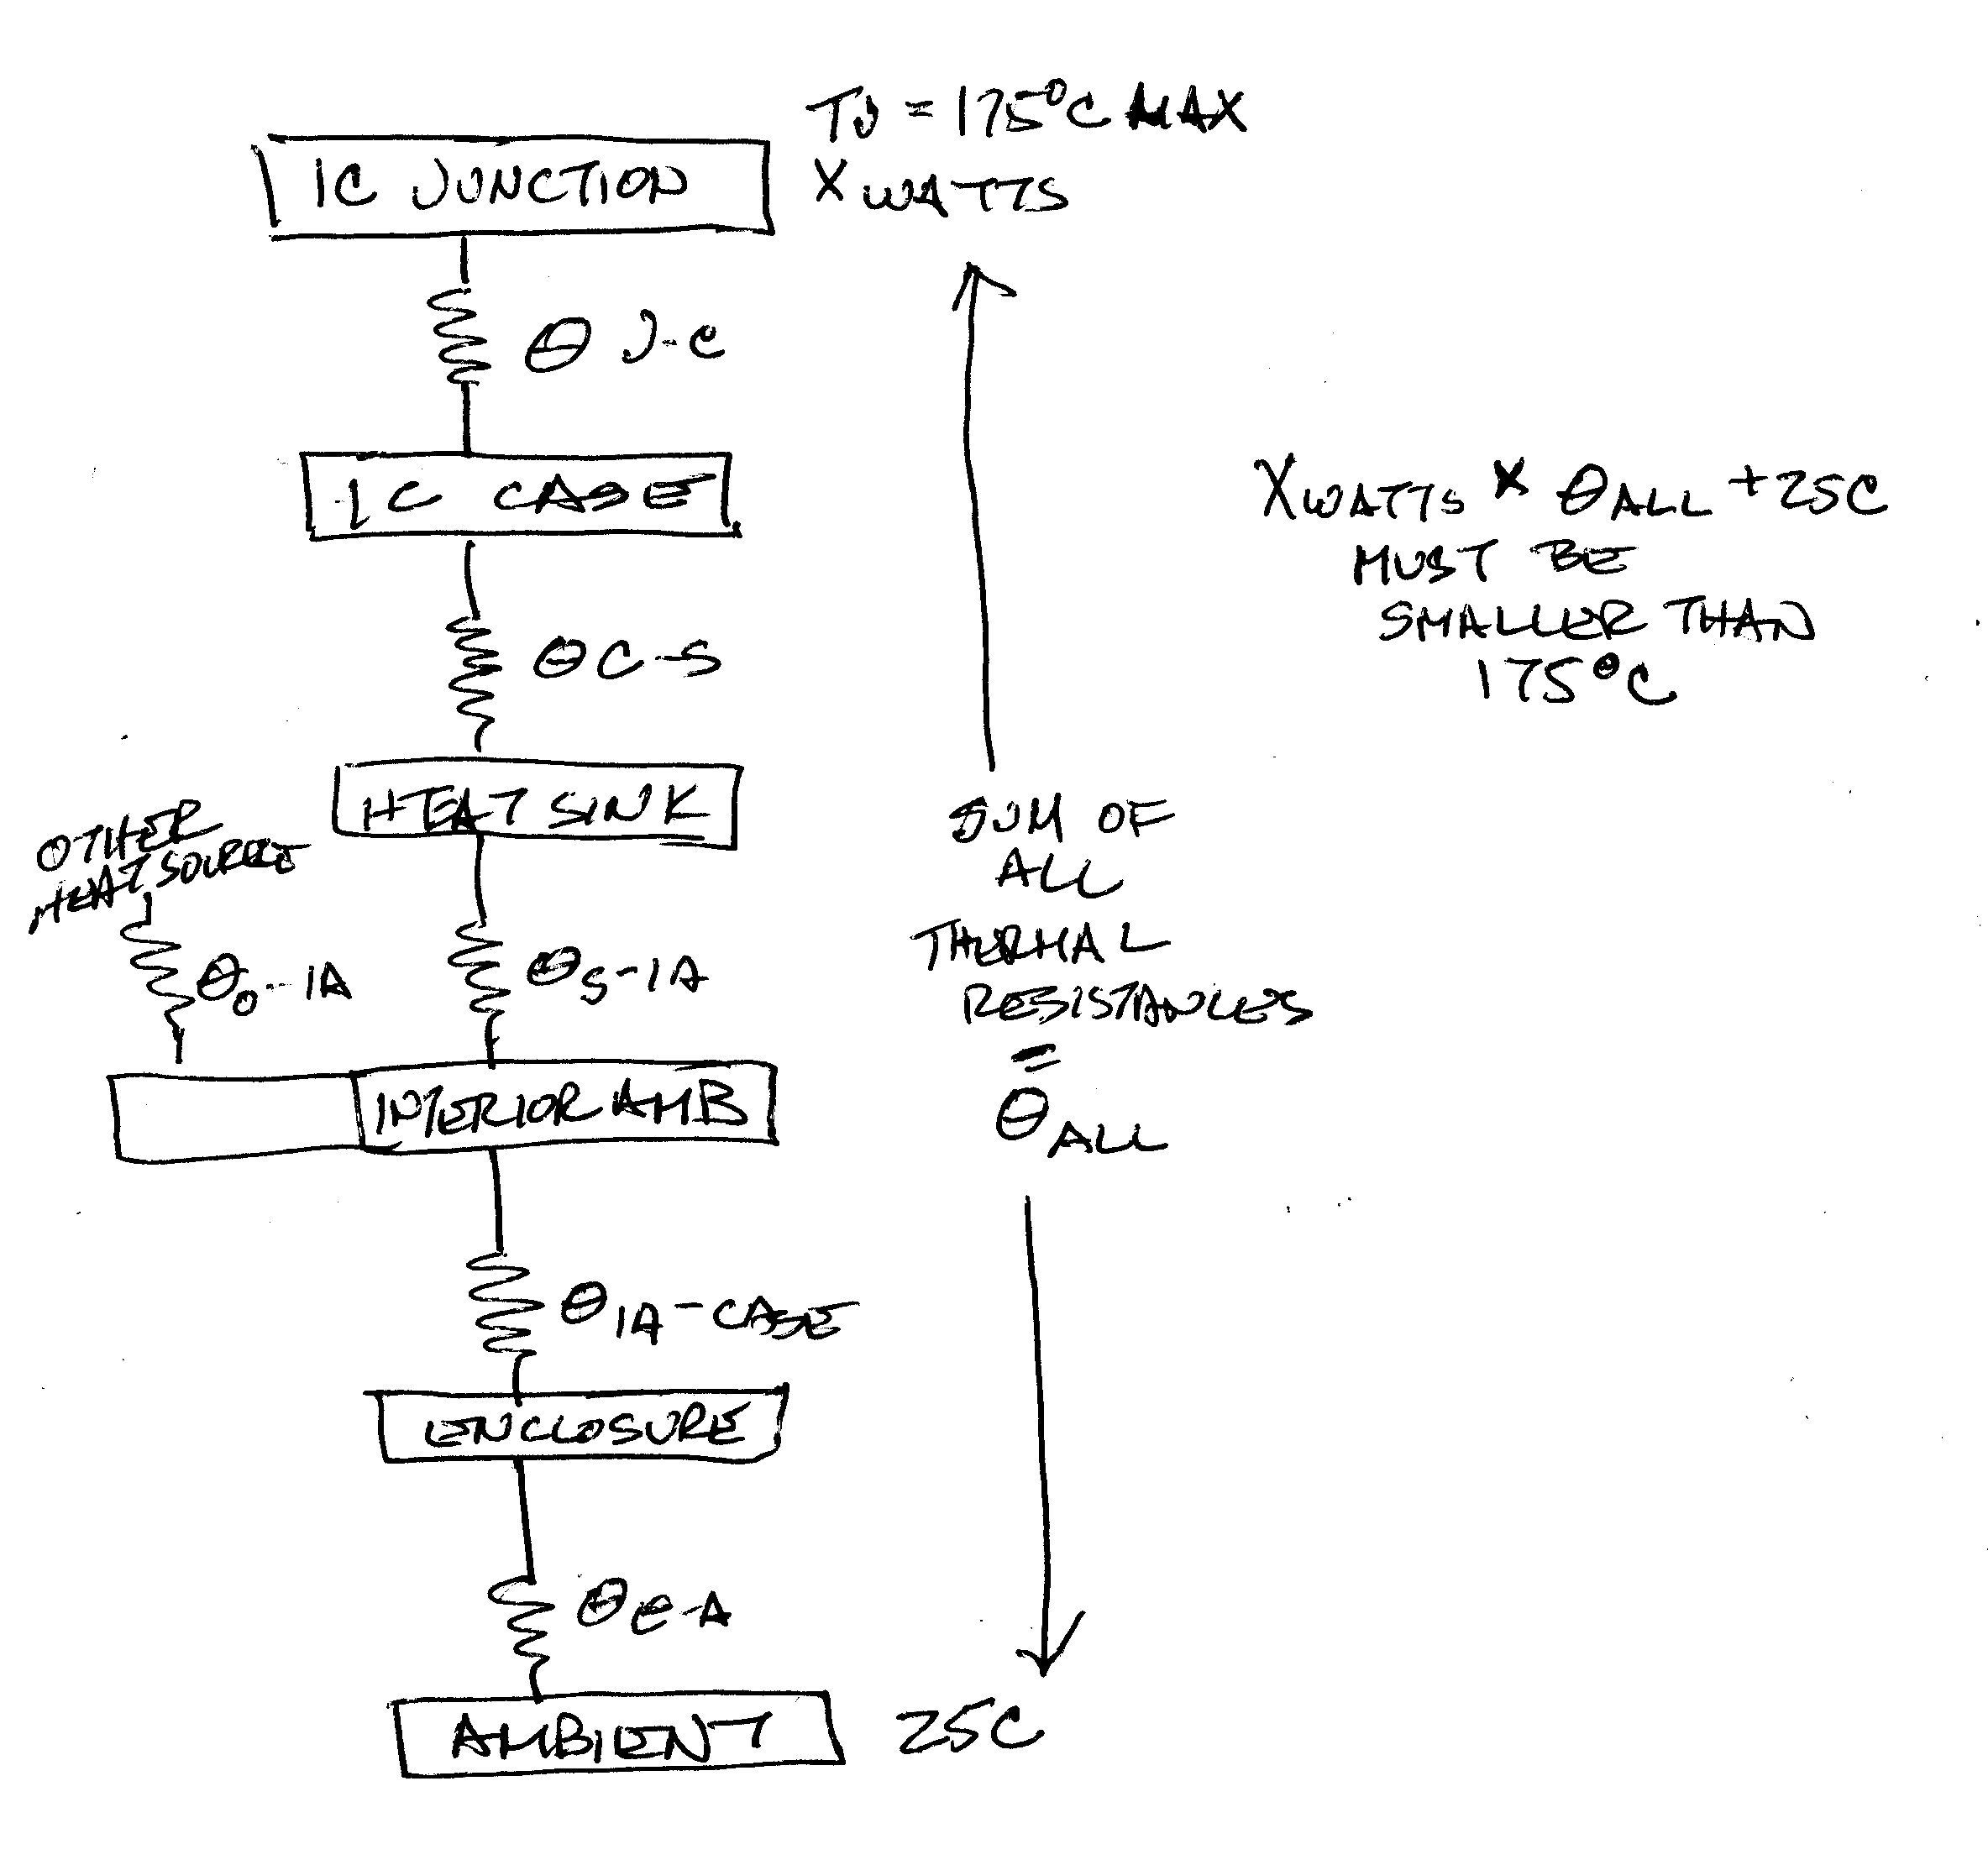 TJ = 175°C MAX
X WATTS
IC JUNCTION
θ J-C
IC CASE
θ C-S
HEAT SINK
OTHER
HEAT SOURCE
θO-IA
θS-IA
INTERIOR AMB
θIA-CASE
ENCLOSURE
θe-A
AMBIENT
25C
SUM OF
ALL
THERMAL
RESISTANCES
=
θALL
XWATTS X θALL +25C
MUST BE
SMALLER THAN
175°C